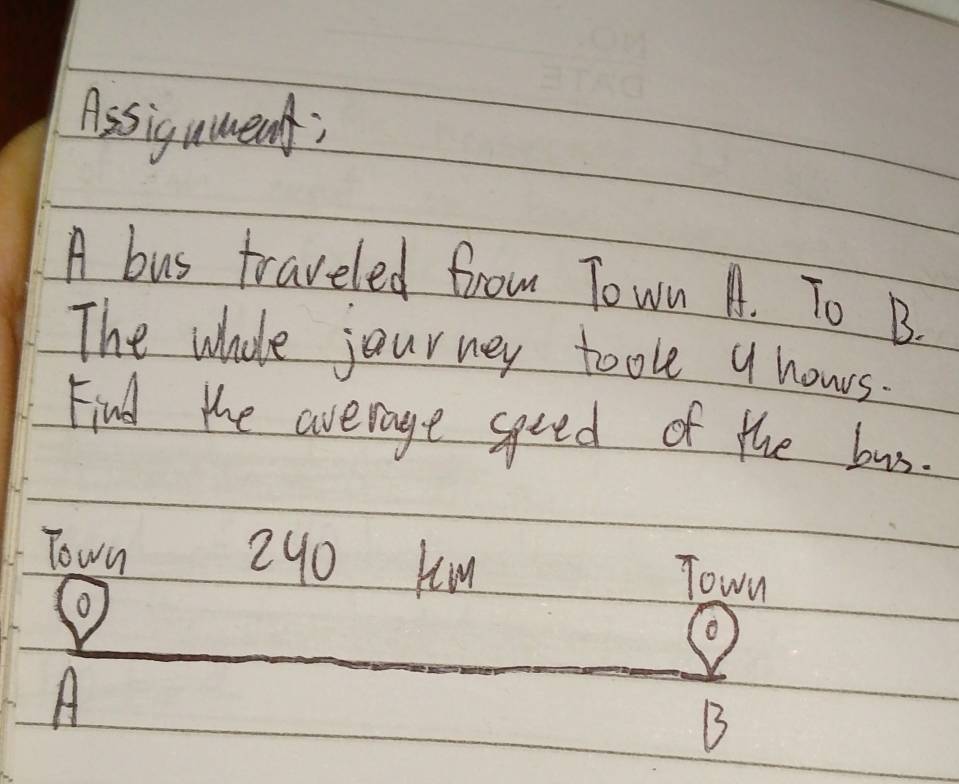 Assignment;
A bus traveled from Town A. To B.
The whole journey took 4 hours.
Find the average speed of the bus.
Town 240 km Town
A B